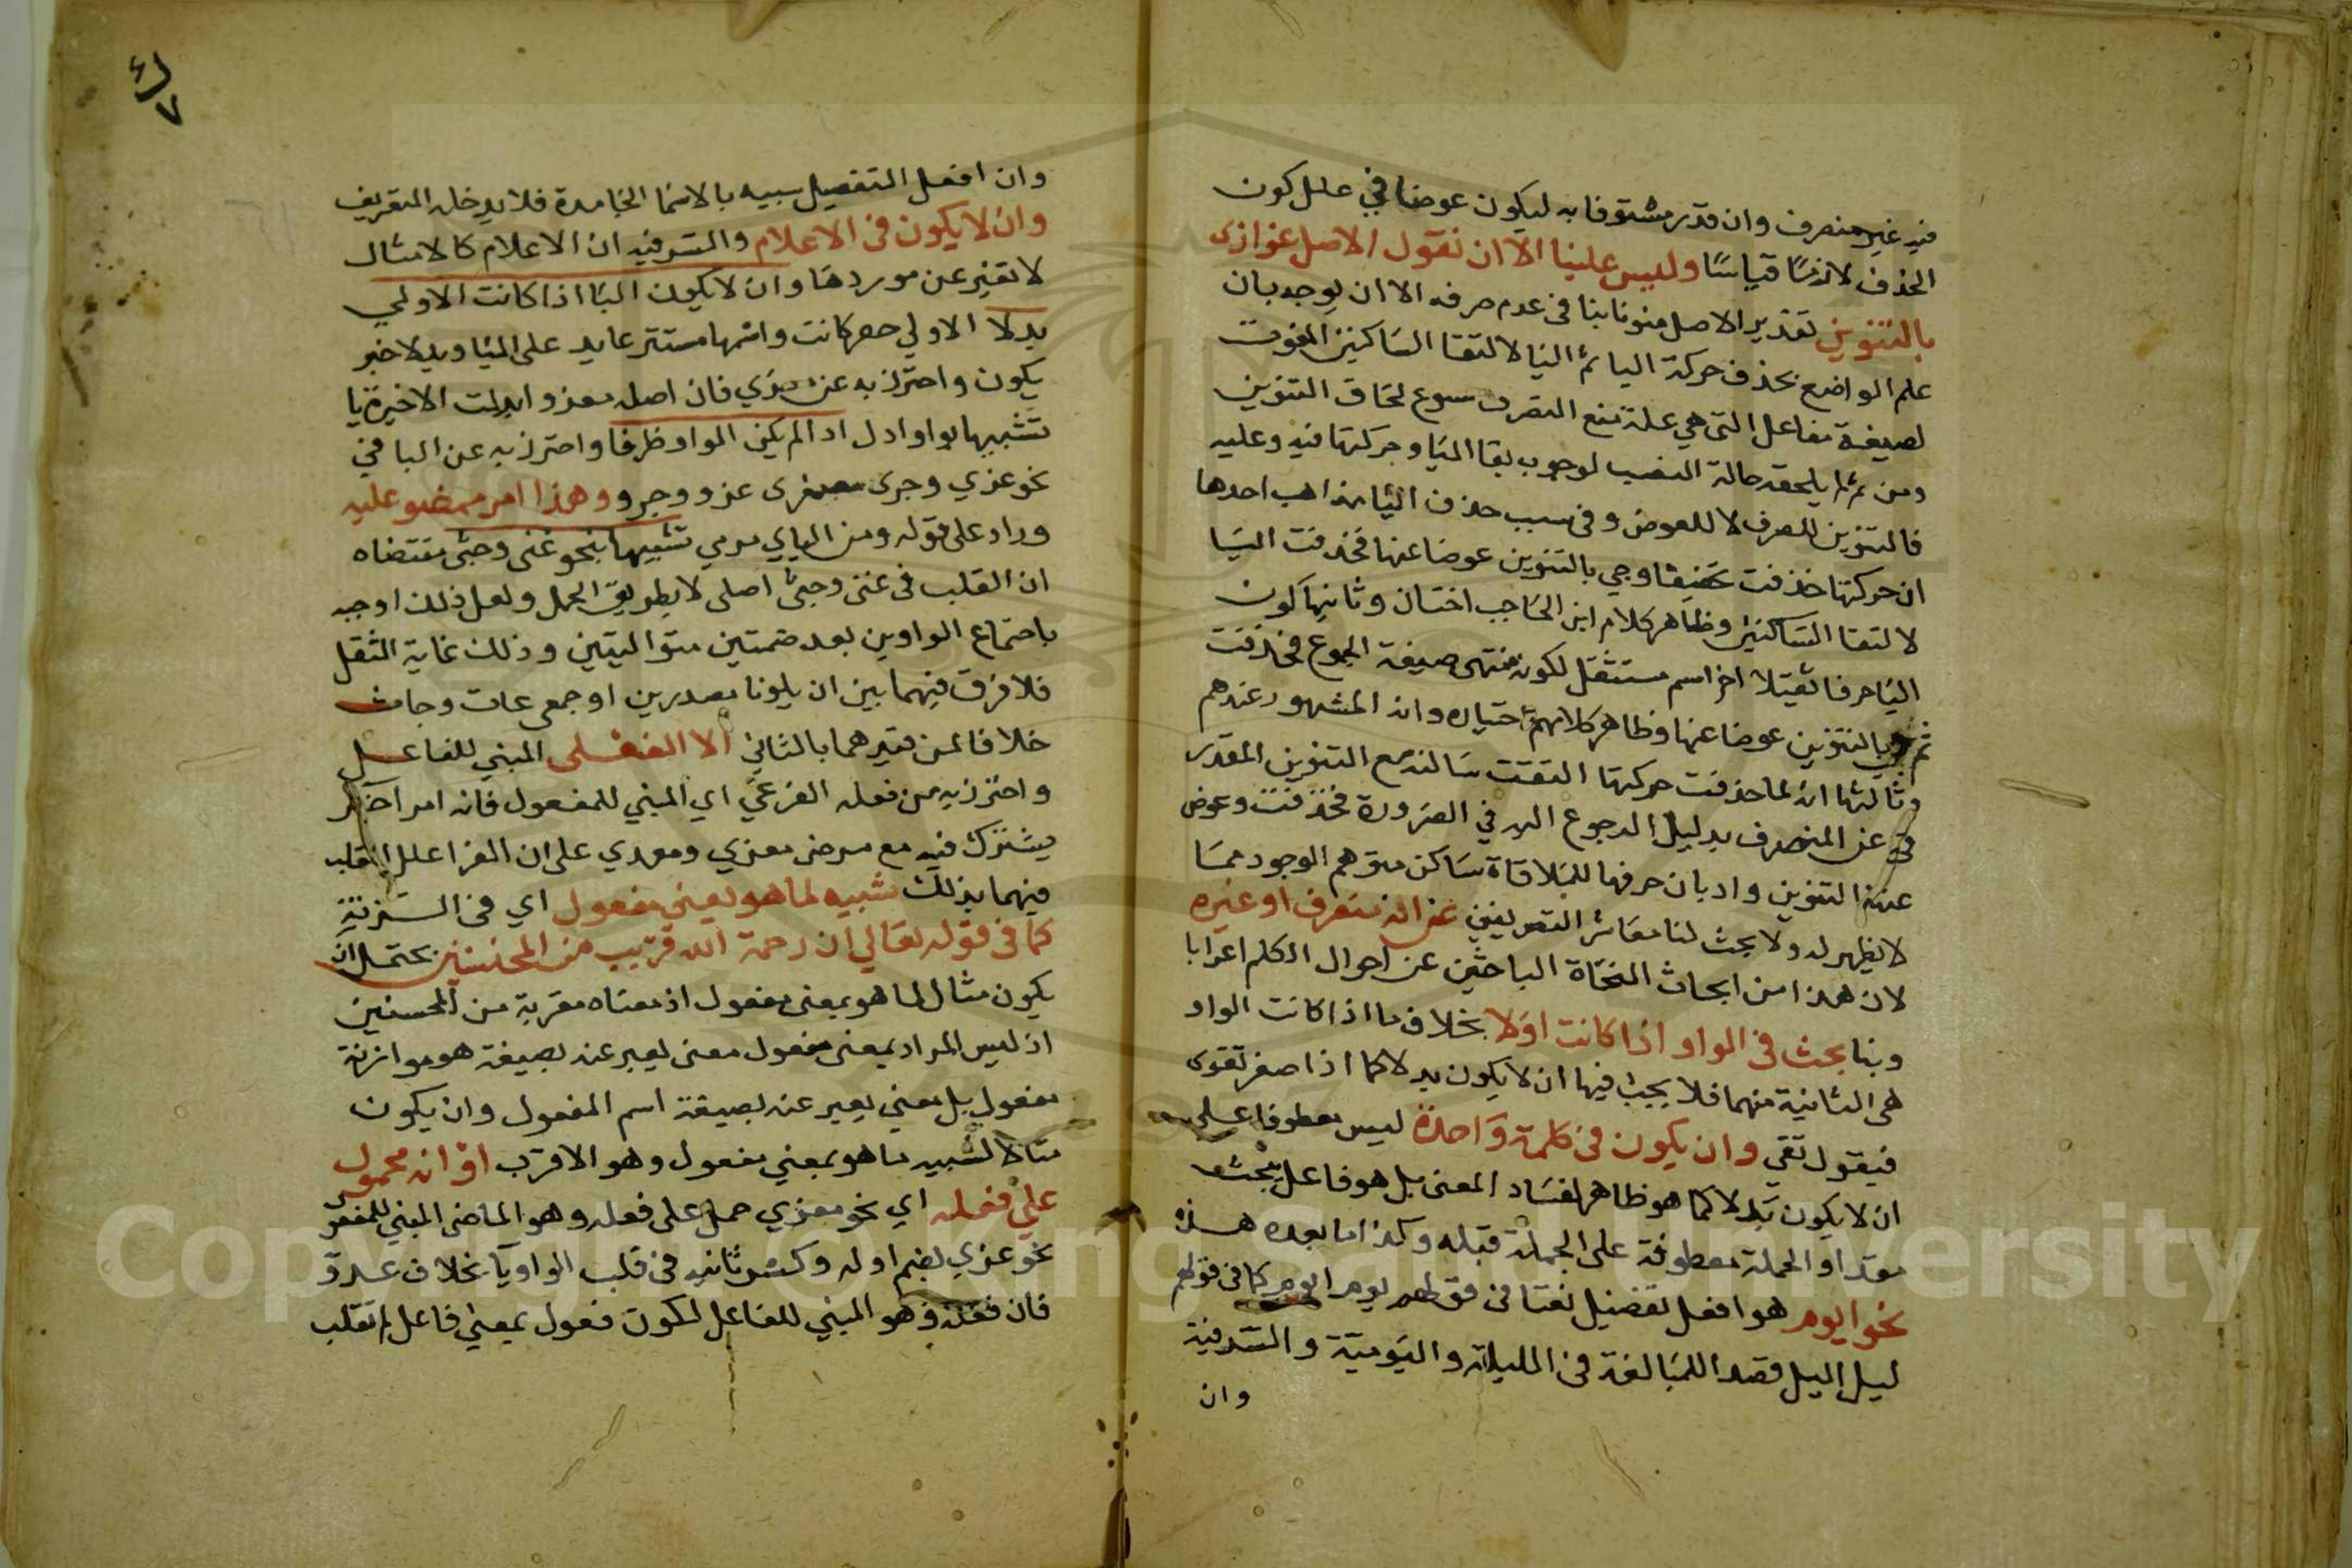 فيه غير منصرف وان قدر مشتوفا به ليكون عوضا في علل كون
الحذف لازمًا قياسًا وليس علينا الا ان نقول الاصل غوازى
بالتنوين تقدير الاصل منونا بنا فى عدم صرفه الا ان يوجد بان
علم الواضع بحذف حركة اليا ثم اليا لالتقا الساكنين المفوت
لصيغة مفاعل التى هي علة تمنع الصرف سوع لحاق التنوين
ومن ثم لم يلحقه حالة النصب لوجوب بقا اليا وحركتها فيه وعليه
فالتنوين للصرف لا للعوض وفى سبب حذف اليا مذاهب احدها
ان حركتها حذفت تخفيفا وجي بالتنوين عوضا عنها فحذفت اليا
لالتقا الساكنين وظاهر كلام ابن الحاجب اختيان وثانيها كون
اليا حرفا ثقيلا اخر اسم مستثقل لكونه منتهى صيغة الجموع فحذفت
ثم بالتنوين عوضا عنها وظاهر كلامهم احتياره وان المشهور عندهم
وثالثها انه لما حذفت حركتها التقت ساكنة مع التنوين المقدر
فى غير المنصرف بدليل الرجوع اليه في الضرورة فحذفت وعوض
عنها التنوين واد بان حرفها للملاقاة ساكن متوهم الوجود مما
لا يظهر له ولا بحث لنا معاشر التصريفين عن انه منصرف او غيره
لان هذا من ابحاث النحاة الباحثين عن احوال الكلم اعرابا
وبنا بحث فى الواو اذا كانت اولا بخلاف ما اذا كانت الواو
هى الثانية منهما فلا يجب فيها ان لا يكون بدلا كما اذا صغر تقوى
فيقول تقي وان يكون فى كلمة واحدة ليس معطوفا على
ان لا يكون بدلا كما هو ظاهر لفساد المعنى بل هو فاعل يجب
مقدرا والجملة معطوفة على الجملة قبله وكذا ما بعده هذا
نحو ايوم هو افعل تفضيل نعتا فى قولهم يوم ايوم كما فى قولهم
ليل اليل قصدا للمبالغة فى الليلة واليومية والسر فيه
وان
وان افعل التفضيل سبيه بالاسما الجامدة فلا يدخله التعريف
وان لا يكون فى الاعلام والسر فيه ان الاعلام كالامثال
لا تغير عن موردها وان لا يكون اليا اذا كانت الاولي
بدلا الاولي خبر كانت واسمها مستتر عايد على اليا وبدلا خبر
يكون واحترز به عن مغزي فان اصله مغزو ابدلت الاخيرة يا
تشبيها بواو ادل اد الم يكن الواو ظرفا واحترز به عن البا في
نحو غزي وجرى مصغرى غزو وجرو وهذا امر ممضو عليه
وراد على قوله ومن الياي مرمي تشبيها بنحو عتى وجثى مقتضاه
ان القلب فى عتى وجثى اصلى لا بطريق الحمل ولعل ذلك اوجبه
باجتماع الواوين بعد ضمتين متواليتين وذلك غاية الثقل
فلا فرق فيهما بين ان يلونا مصدرين او جمعى عات وجاث
خلافا لمن قيدهما بالثاني الا الفعلى المبني للفاعل
واحترز به من فعله الفرعي اي المبني للمفعول فانه امر اخر
يشترك فيه مع مرض معزي ومعدي على ان الفرا علل القلب
فيهما بذلك شبيه لما هو بمعنى مفعول اي فى الزنة
كما فى قوله تعالي ان رحمة الله قريب من المحسنين يحتمل ان
يكون مثال لما هو بمعنى مفعول اذ معناه مقربة من المحسنين
اذ ليس المراد بمعنى مفعول معنى يعبر عنه بصيغة هو موازنة
مفعول بل معني يعبر عنه بصيغة اسم المفعول وان يكون
مثالا لشبيه ما هو بمعني مفعول وهو الاقرب او انه محمول
علي فعله اي نحو مغزي حمل على فعله وهو الماضى المبني للمفعول
نحو غزي بضم اوله وكسر ثانيه فى قلب الواو يآ بخلاف عدوّ
فان فعله وهو المبني للفاعل لكون فعول بمعني فاعل لم تقلب
Copyright © King Saud University